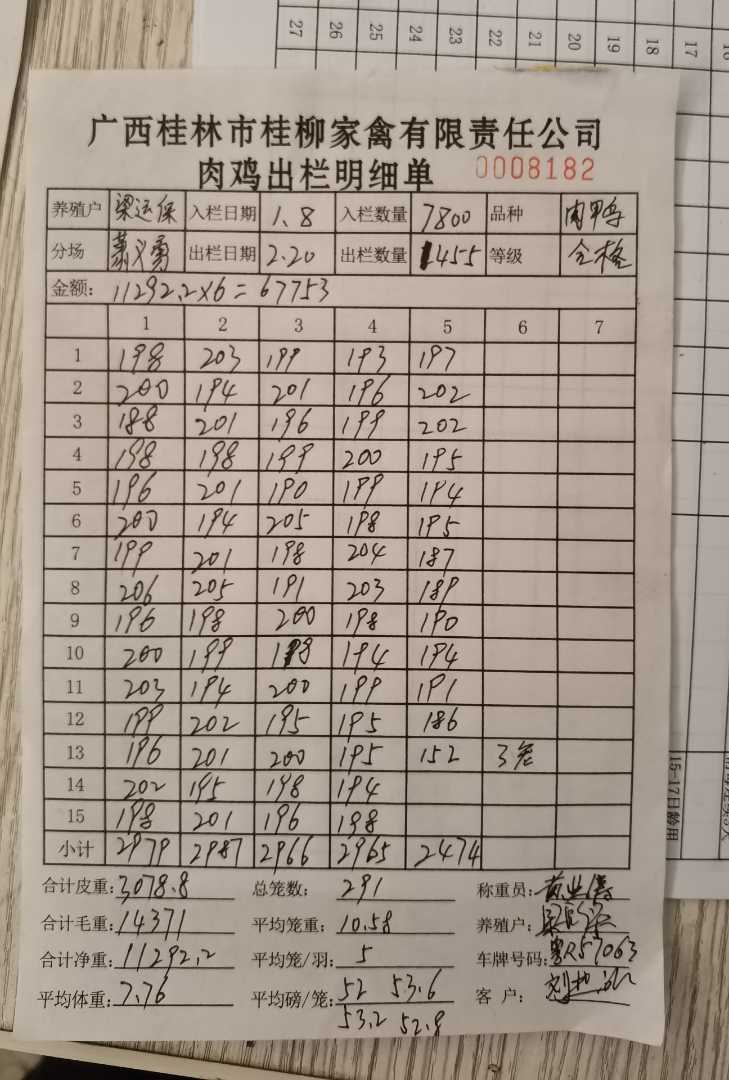 27 26 25 24 23 22 21 20 19 18 17 16
广西桂林市桂柳家禽有限责任公司
肉鸡出栏明细单 0008182
养殖户 梁运保 入栏日期 1.8 入栏数量 7800 品种 肉甲鸟
分场 萧义勇 出栏日期 2.20 出栏数量 1455 等级 合格
金额: 11292.2×6=67753
1 2 3 4 5 6 7
1 198 203 199 193 197
2 200 194 201 196 202
3 188 201 196 199 202
4 198 198 199 200 195
5 196 201 190 199 194
6 200 194 205 198 195
7 199 201 198 204 187
8 206 205 191 203 189
9 196 198 200 198 190
10 200 199 198 194 194
11 203 194 200 199 191
12 199 202 195 195 186
13 196 201 200 195 152 3笼
14 202 195 198 194
15 198 201 196 198
小计 2979 2987 2966 2965 2474
合计皮重: 3078.8 总笼数: 291 称重员:
合计毛重: 14371 平均笼重: 10.58 养殖户:
合计净重: 11292.2 平均笼/羽: 5 车牌号码: 粤R57063
平均体重: 7.76 平均磅/笼: 52 53.6 客 户:
53.2 52.8
15-17日龄用